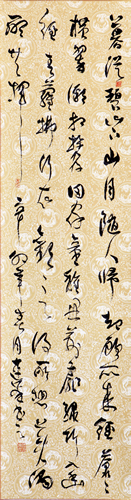 暮從碧山下山月随人歸却顧所来徑蒼〻
橫翠微相携及田家童稚開荆扉緑竹入幽
徑青蘿拂行衣歡言得所憩美酒
聊共揮
辛卯年春月